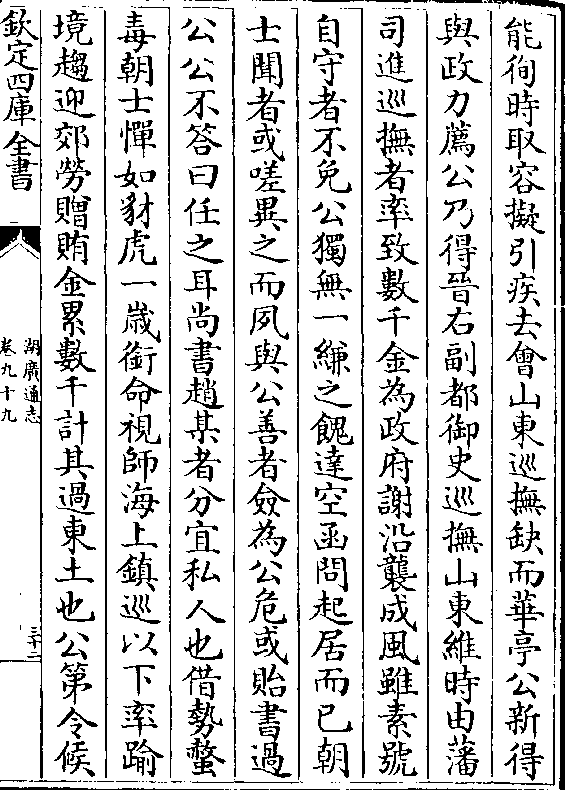 能徇時取容擬引疾去會山東巡撫缺而華亭公新得
與政力薦公乃得晉右副都御史巡撫山東維時由藩
司進巡撫者率致數千金為政府謝沿襲成風雖素號
自守者不免公獨無一縑之餽達空函問起居而已朝
士聞者或嗟異之而夙與公善者僉為公危或貽書過
公公不答曰任之耳尚書趙某者分宜私人也借勢螫
毒朝士憚如豺虎一歲銜命視師海上鎮巡以下率踰
境趨迎郊勞贈賄金累數千計其過東土也公第令候
欽定四庫全書
湖廣通志
卷九十九
三十二